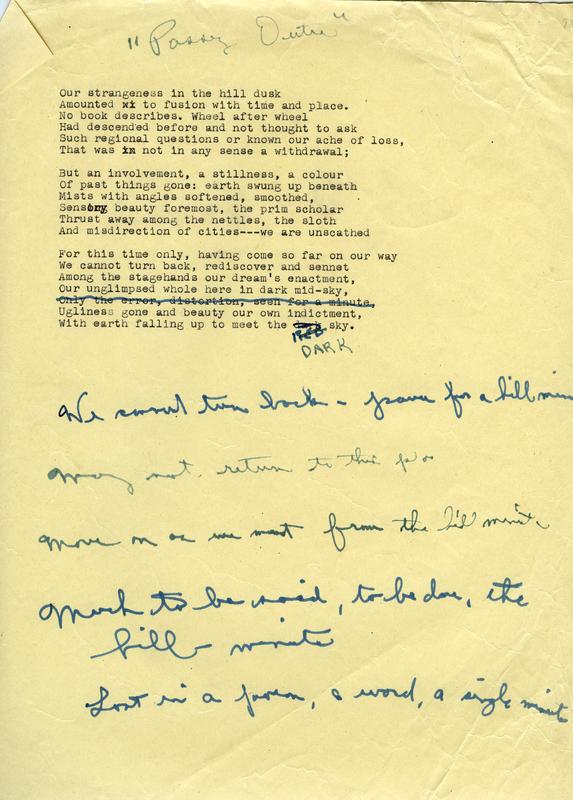 "Passez Outre"
Our strangeness in the hill dusk
Amounted xi to fusion with time and place.
No book describes. Wheel after wheel
Had descended before and not thought to ask
Such regional questions or known our ache of loss,
That was in not in any sense a withdrawal;
But an involvement, a stillness, a colour
Of past things gone: earth swung up beneath
Mists with angles softened, smoothed,
Sensory beauty foremost, the prim scholar
Thrust away among the nettles, the sloth
And misdirection of cities---we are unscathed
For this time only, having come so far on our way
We cannot turn back, rediscover and sennet
Among the stagehands our dream's enactment,
Our unglimpsed whole here in dark mid-sky,
Only the error, distortion, seen for a minute,
Ugliness gone and beauty our own indictment,
With earth falling up to meet the sky.
DARK
We cannot turn back - for a hill
May not return to this
Move on as we must from the hill minute
Much to be said, to be done, the
hill minute
Lost in a a word, a single minute